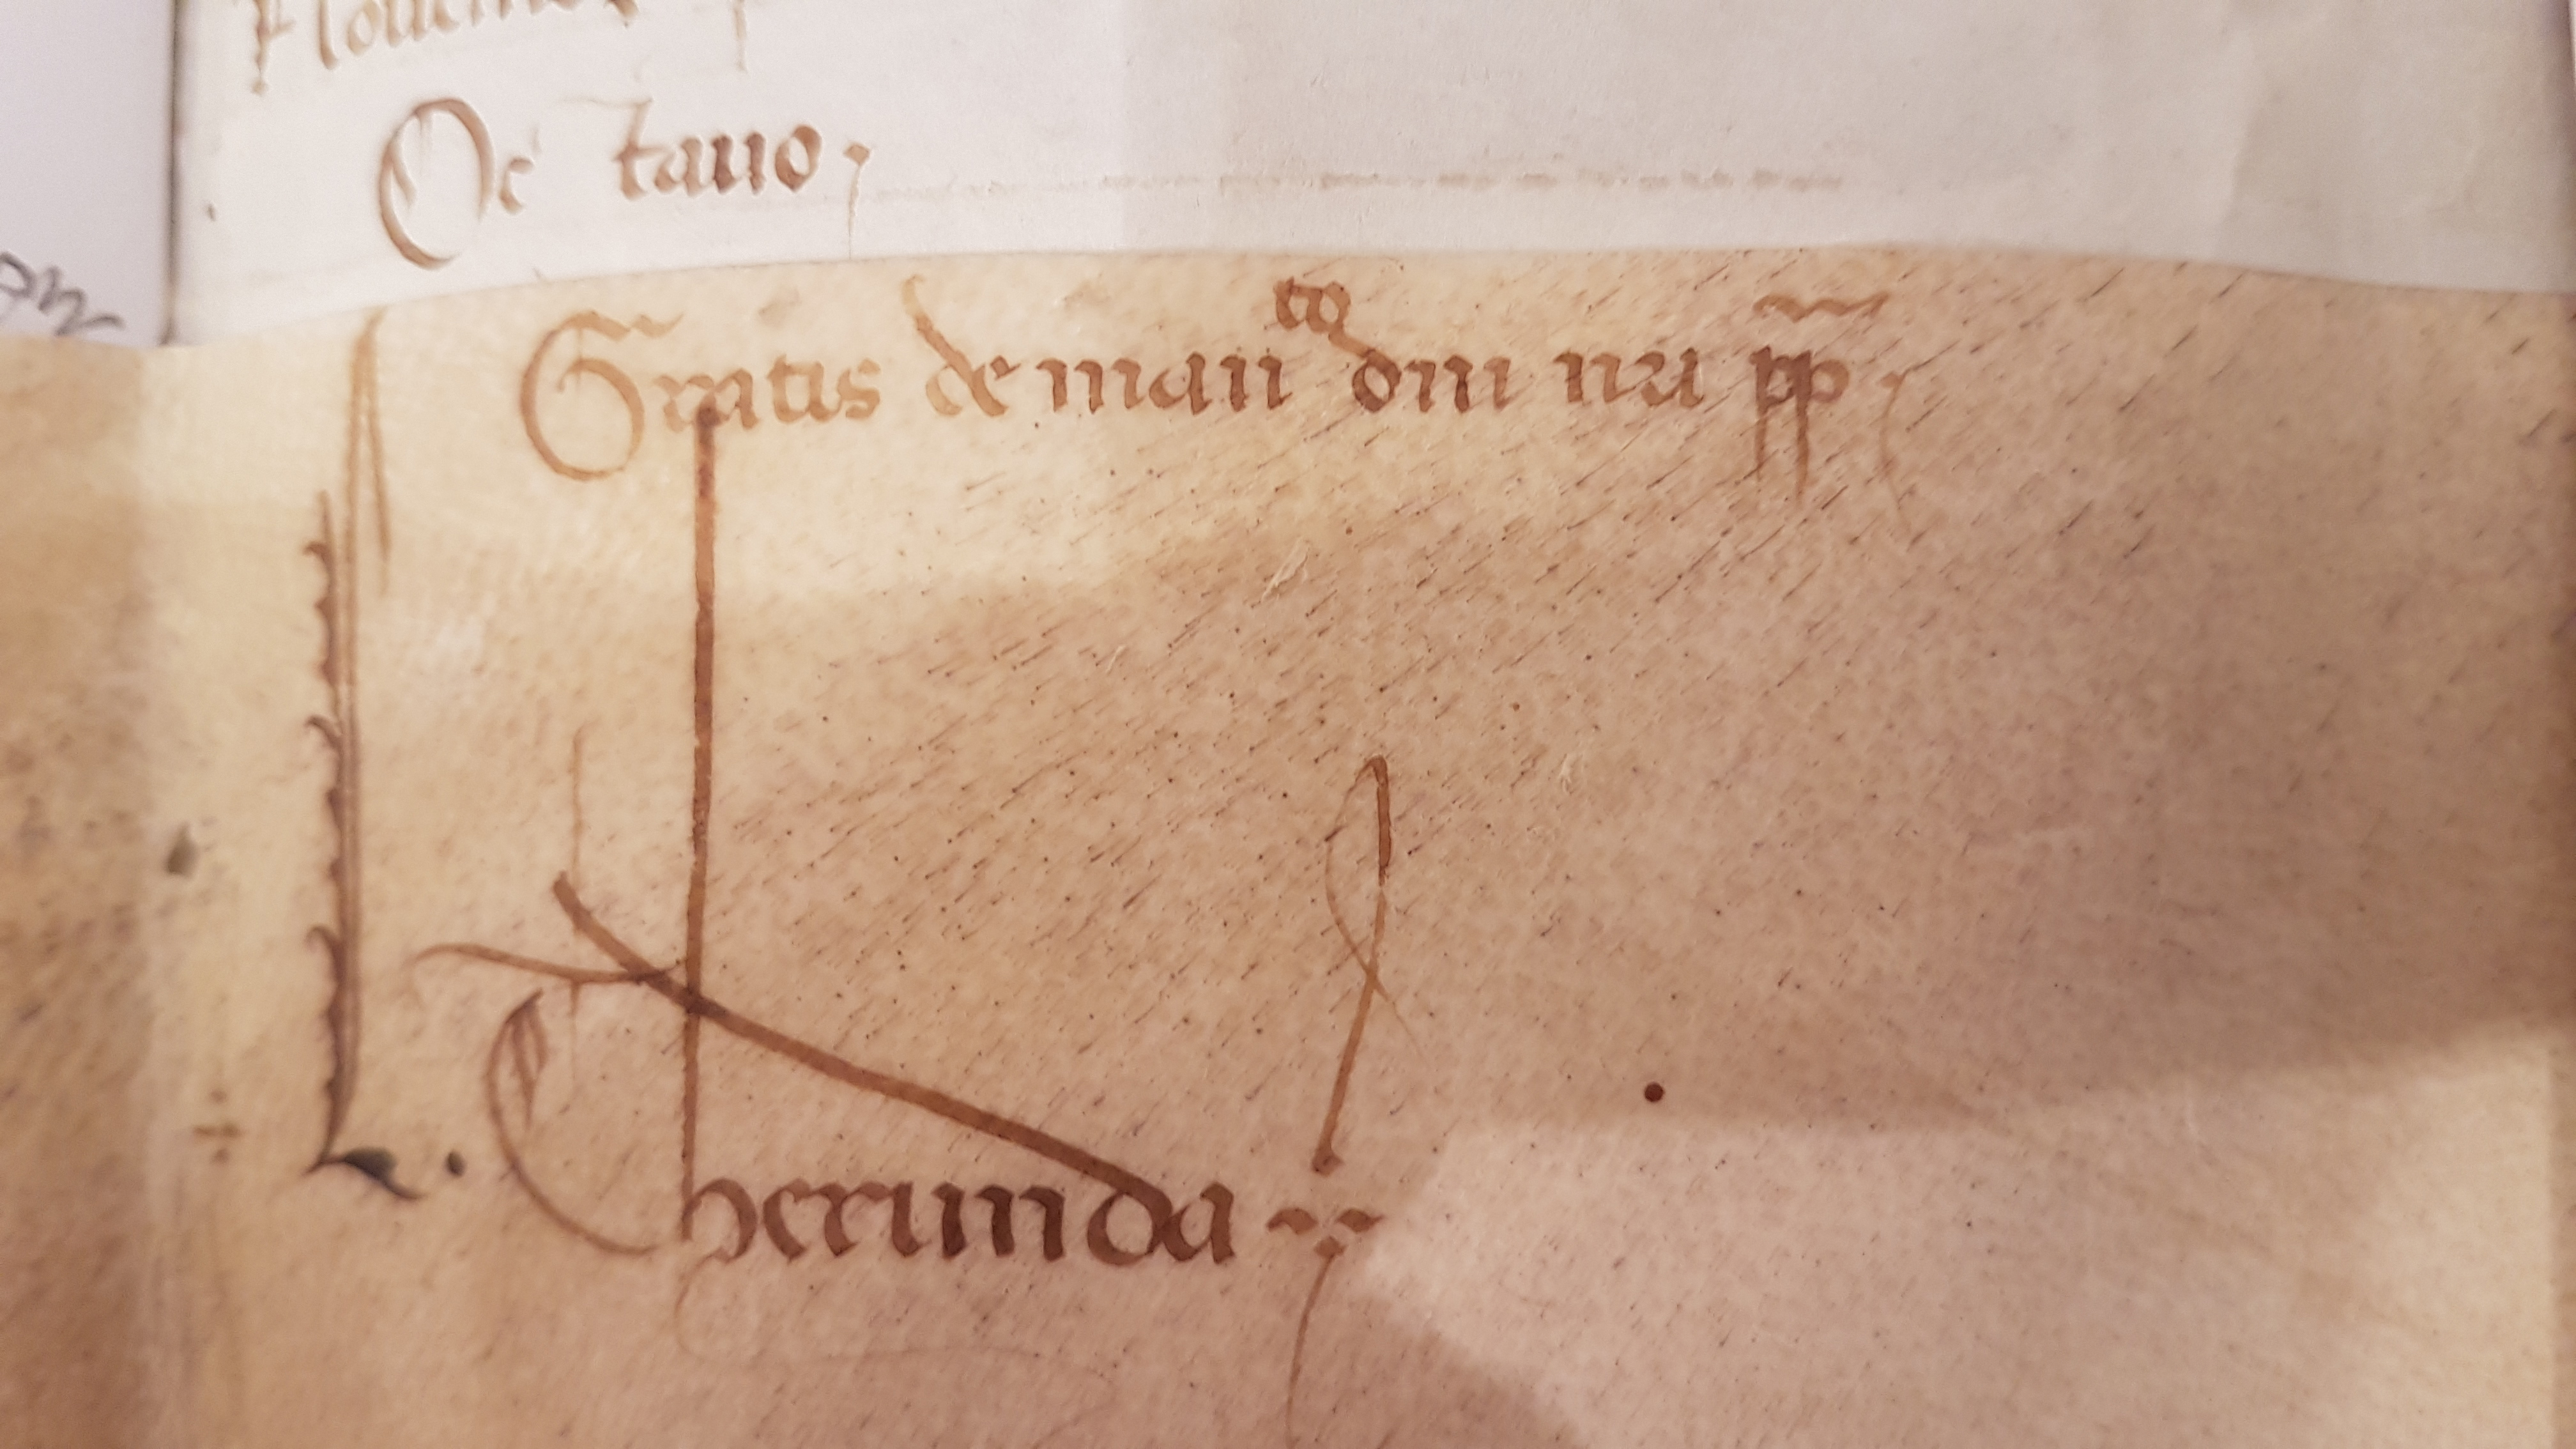 Octauo
Gratis de man to dni nri pp
L. Gherunda